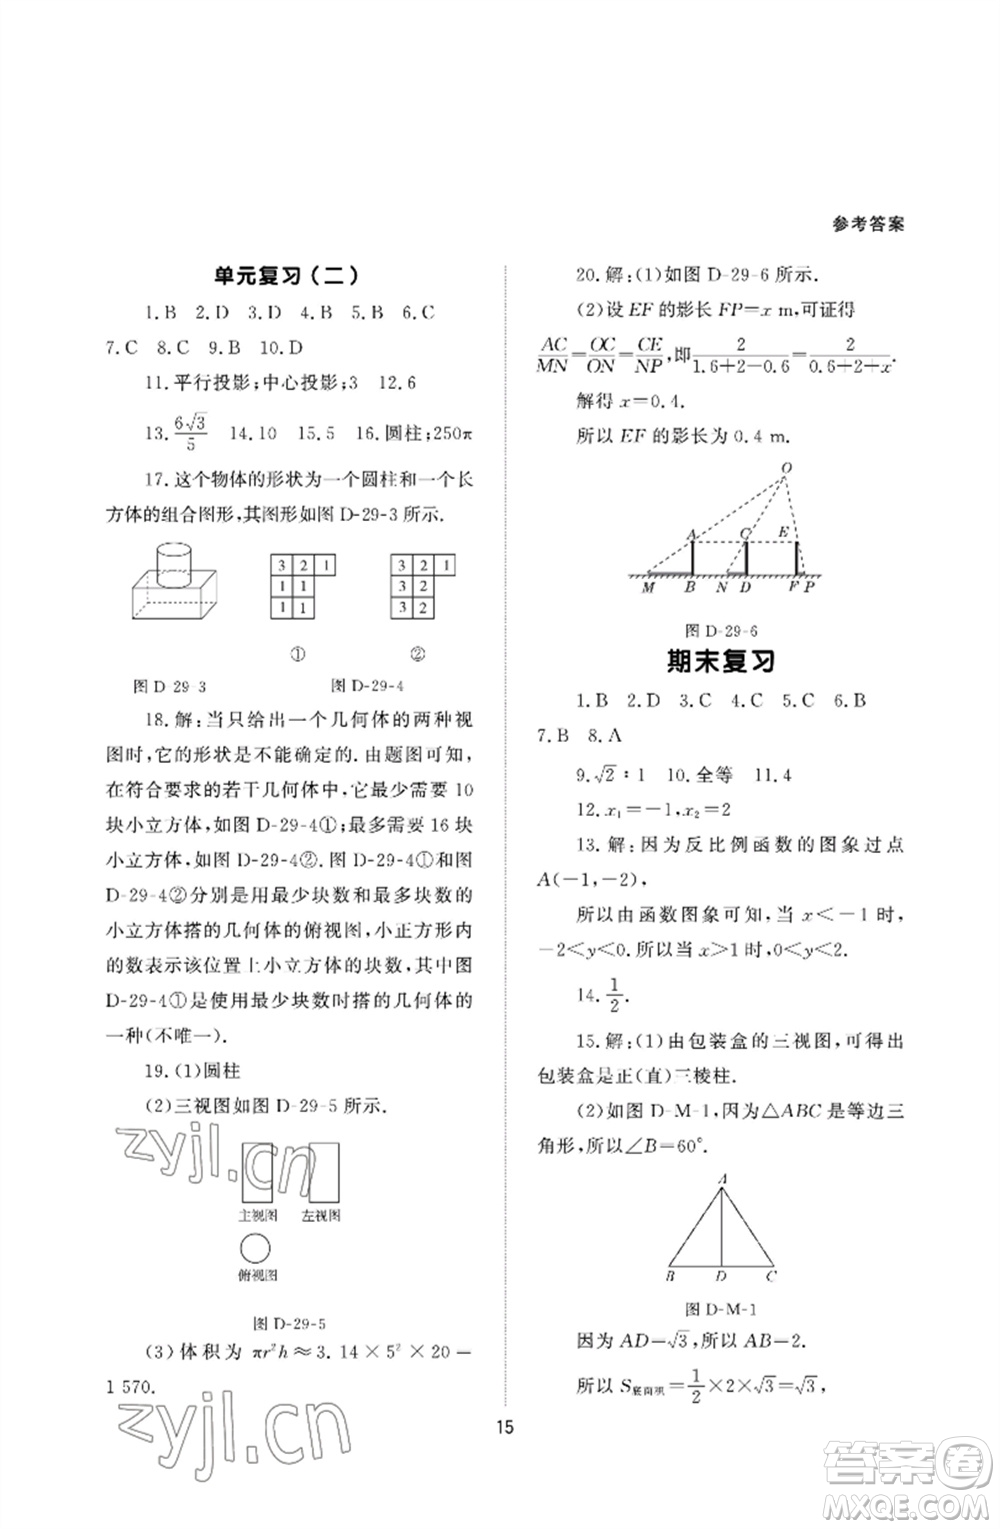 参考答案
单元复习(二)
1.B 2.D 3.D 4.B 5.B 6.C
7.C 8.C 9.B 10.D
11.平行投影;中心投影;3 12.6
13.6√3/5 14.10 15.5 16.圆柱;250π
17.这个物体的形状为一个圆柱和一个长
方体的组合图形,其图形如图 D-29-3 所示.
3 2 1
1 1
1 1
①
3 2 1
3 2
3 2
②
图 D 29 3
图 D-29-4
18.解:当只给出一个几何体的两种视
图时,它的形状是不能确定的.由题图可知,
在符合要求的若干几何体中,最少需要 10
块小立方体,如图 D-29-4①;最多需要 16 块
小立方体,如图 D-29-4②.图 D-29-4①和图
D-29-4②分别是用最少块数和最多块数的
小立方体搭的几何体的俯视图,小正方形内
的数表示该位置上小立方体的块数,其中图
D-29-4①是使用最少块数时搭的几何体的
一种(不唯一).
19.(1)圆柱
(2)三视图如图 D-29-5 所示.
主视图 左视图
俯视图
图 D-29-5
(3)体积为 πr²h≈3.14×5²×20=
1 570.
20.解:(1)如图 D-29-6 所示.
(2)设 EF 的影长 FP=x m,可证得
AC/MN=OC/ON=CE/NP,即2/(1.6+2-0.6)=2/(0.6+2+x).
解得 x=0.4.
所以 EF 的影长为 0.4 m.
O
A C E
M B N D F P
图 D-29-6
期末复习
1.B 2.D 3.C 4.C 5.C 6.B
7.B 8.A
9.√2∶1 10.全等 11.4
12.x₁=-1,x₂=2
13.解:因为反比例函数的图象过点
A(-1,-2),
所以由函数图象可知,当 x<-1 时,
-2<y<0.所以当 x>1 时,0<y<2.
14.1/2.
15.解:(1)由包装盒的三视图,可得
包装盒是正(直)三棱柱.
(2)如图 D-M-1,因为△ABC 是等边三
角形,所以∠B=60°.
A
B D C
图 D-M-1
因为 AD=√3,所以 AB=2.
所以 S底面积=1/2×2×√3=√3,
15
zyjl.cn
zyjl.cn
答案卷
MXQE.COM